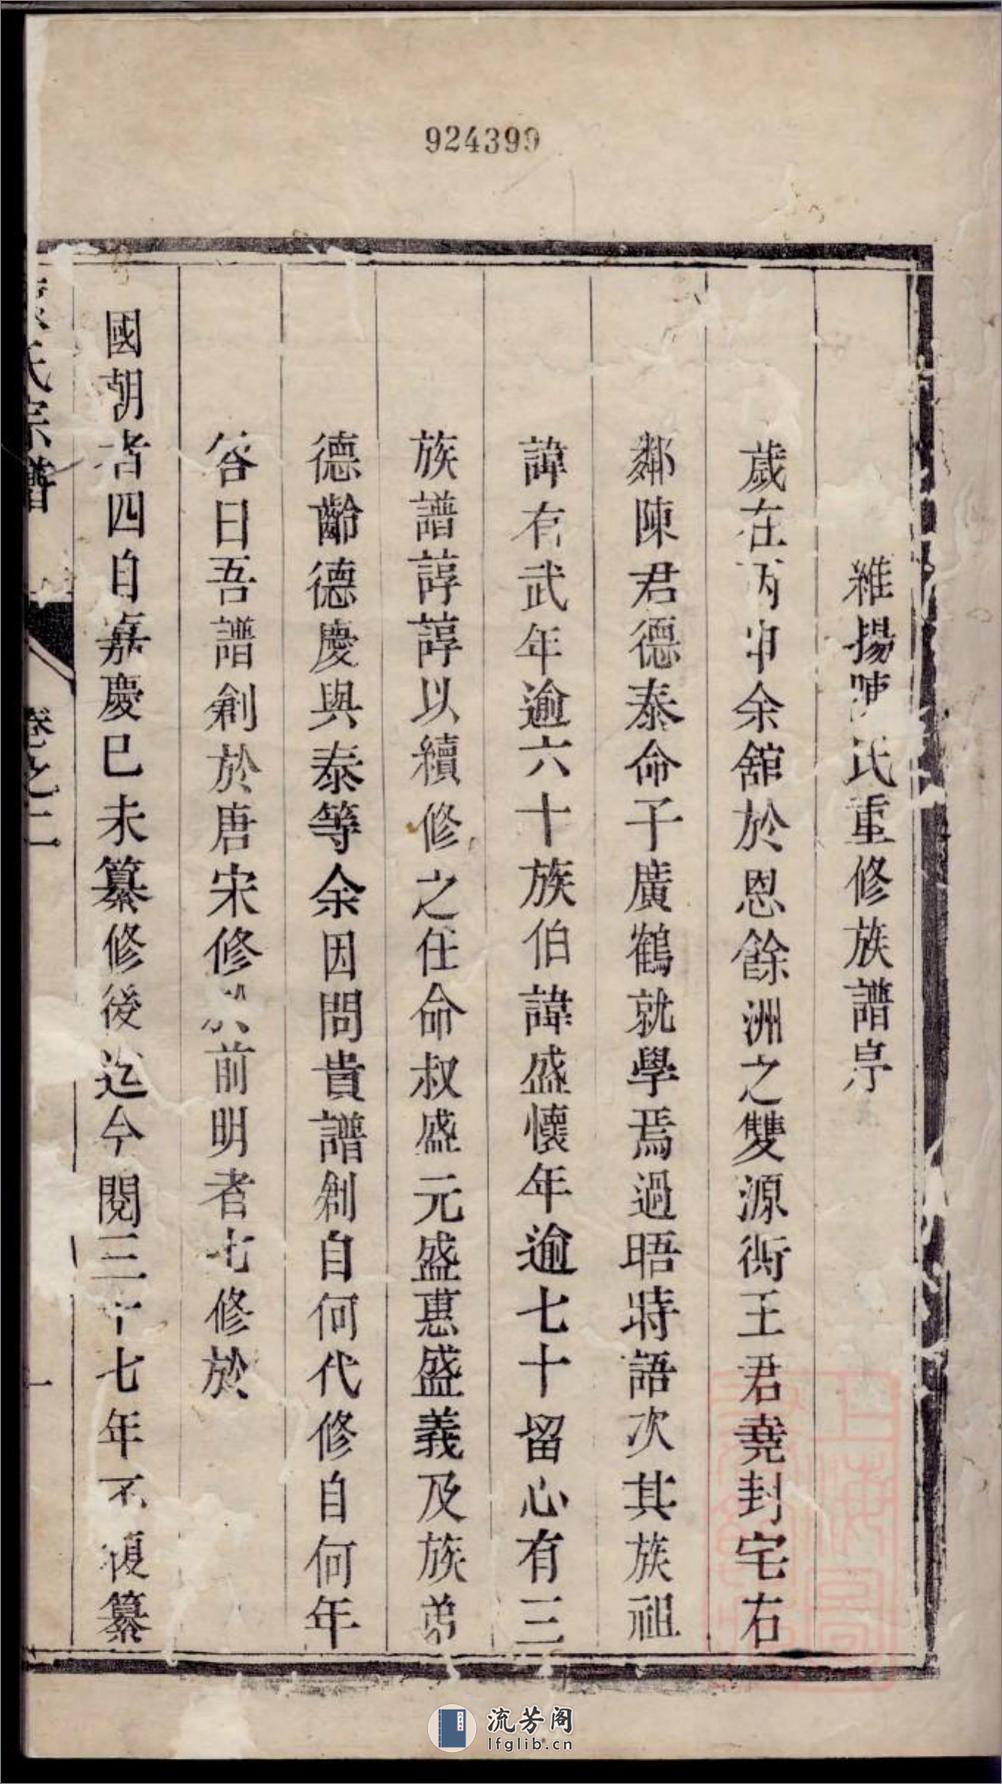 924399
維揚陳氏重修族譜序
歲在丙申余舘於恩餘洲之雙源衖王君堯封宅右
鄰陳君德泰命子廣鶴就學焉過晤時語次其族祖
諱有武年逾六十族伯諱盛懷年逾七十留心有三
族譜諄諄以續修之任命叔盛元盛惠盛義及族弟
德齡德慶與泰等余因問貴譜創自何代修自何年
答曰吾譜剏於唐宋修於前明者七修於
國朝者四自嘉慶已未纂修後迄今閱三十七年不復纂
氏宗譜
卷之二
一
上海圖書館藏
流芳阁
lfglib.cn